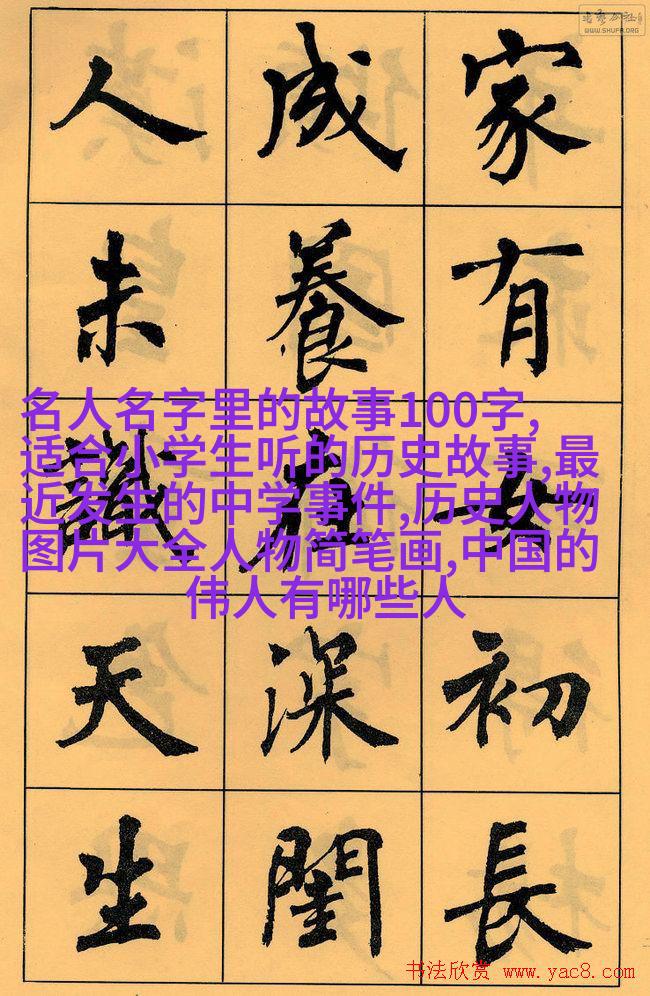 家有女初長
成養在深閨
人未識天生
名人名字里的故事100字,
适合小学生听的历史故事,最
近发生的中学事件,历史人物
图片大全人物简笔画,中国的
伟人有哪些人
WWW.SHUFA.ORG
书法欣赏 www.yac8.com